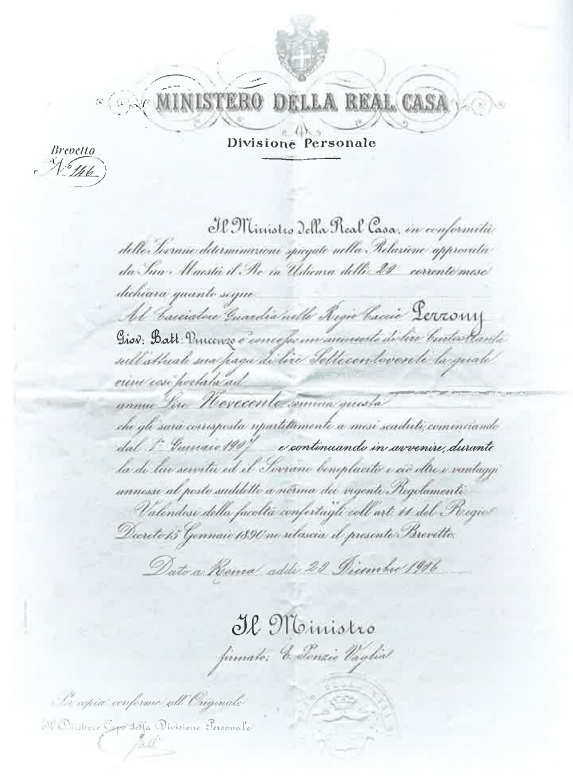 MINISTERO DELLA REAL CASA
Divisione Personale
Brevetto
N.º 146
Il Ministro della Real Casa, in conformità
delle Sovrane determinazioni spiegate nella Relazione approvata
da Sua Maestà il Re in Udienza delli 20 corrente mese
dichiara quanto segue
Al Cacciatore Guardia nelle Regie Caccie Perrony
Giov: Batt: Vincenzo è concesso un aumento di lire Centoottanta
sull'attuale sua paga di lire Settecentoventi la quale
viene così portata ad
annue Lire Novecento somma questa
che gli sarà corrisposta ripartitamente a mesi scaduti, cominciando
dal 1º Gennaio 1907 e continuando in avvenire, durante
la di lui servitù ed il Sovrano beneplacito e ciò oltre i vantaggi
annessi al posto suddetto a norma dei vigenti Regolamenti.
Valendosi della facoltà confertagli coll'art. 11 del Regio
Decreto 15 Gennaio 1890 ne rilascia il presente Brevetto.
Dato a Roma addì 20 Dicembre 1906
Il Ministro
firmato: E. Ponzio Vaglia
Per copia conforme all'Originale
Il Direttore Capo della Divisione Personale